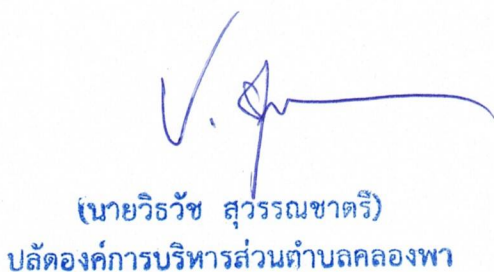 (นายวิธวัช สุวรรณชาตรี)
ปลัดองค์การบริหารส่วนตำบลคลองพา